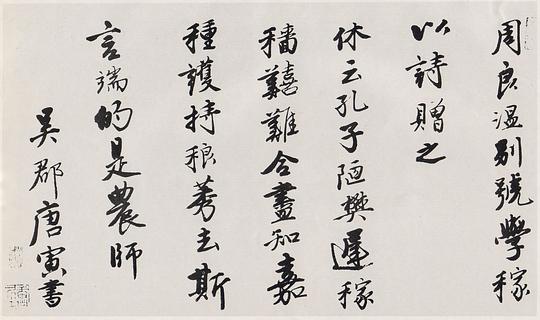 周良溫別號學稼
以詩贈之
休云孔子陋樊遲稼
穡囏難今盡知嘉
種護持稂莠去斯
言端的是農師
吳郡唐寅書